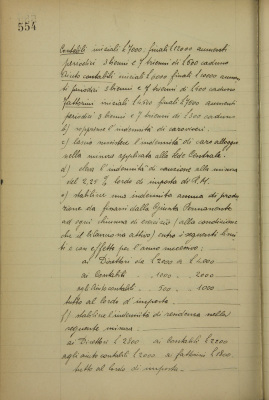 554
Contabili iniziali L 7000. finali L 12000 aumenti
periodici 3 bienni e 7 trienni di L 500 cadauno
Aiuto contabili iniziali L 6000 finali L 10000 aumen
ti periodici 3 bienni e 7 trienni di L 400 cadauno
fattorini iniziali L finali L 7000 aumenti
periodici 3 bienni e 7 trienni di L 300 cadauno
b) sopprimere l'indennità di caroviveri.
c) l'indennità di caro alloggio
nella misura applicata alla Sede Centrale.
d) l'indennità di alla misura
del 2,25 % lordo di imposta di R.M.
e) stabilire una indennità annua di produ
zione da fissarsi dalla Giunta Permanente
ad ogni chiusura di esercizio (alla condizione
che il bilancio sia attivo) entro i seguenti limi
ti e con effetto per l'anno successivo:
ai Direttori da L 2000 a L 4000
ai Contabili " 1000 " 2000
agli aiuto contabili " 500 " 1000
tutto al lordo d'imposta.
f) stabilire l'indennità di residenza nella
seguente misura:
ai Direttori L 2500 ai Contabili L 2200
agli aiuto contabili L 2000 ai fattorini L 1800.
tutto al lordo di imposta.